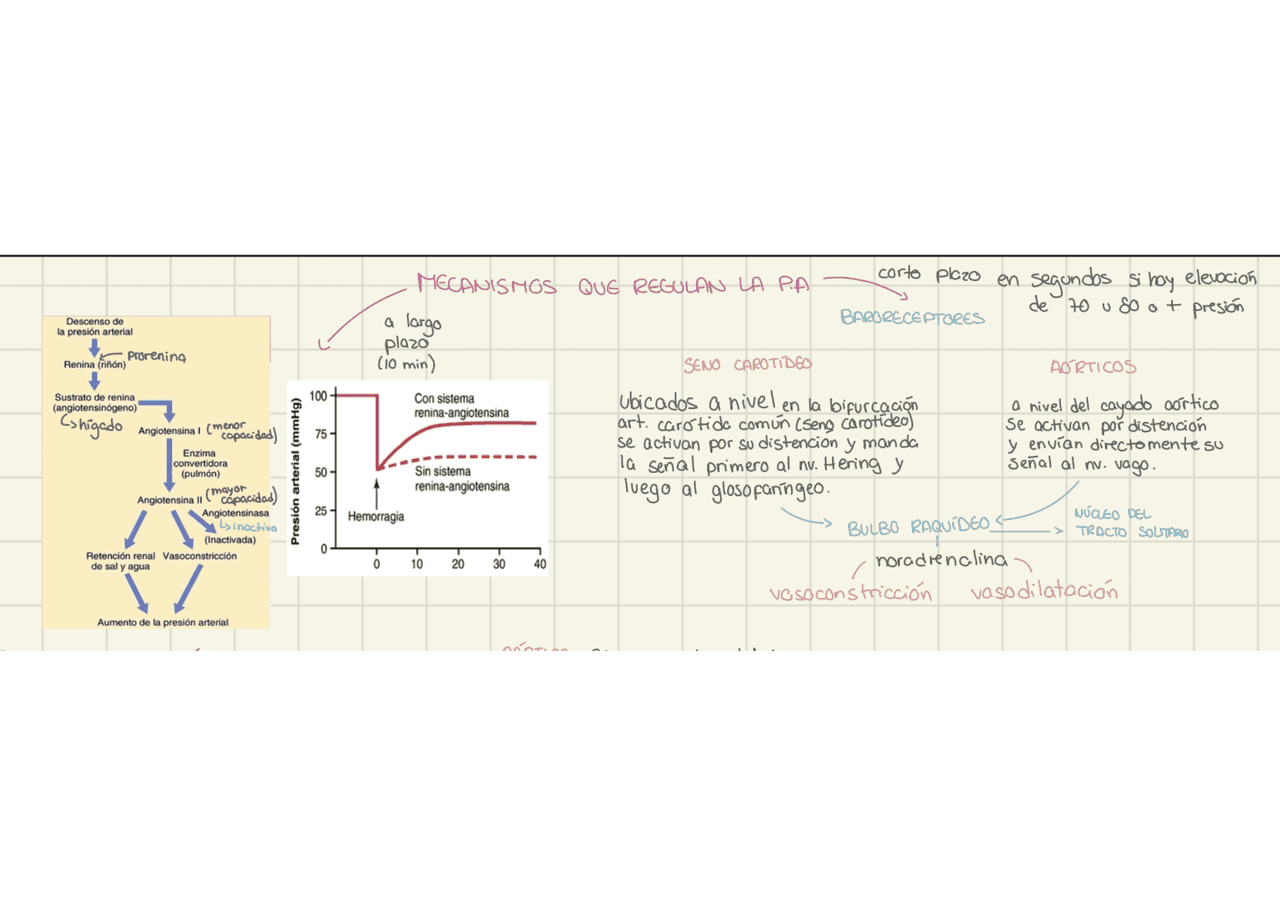 MECANISMOS QUE REGULAN LA P.A
corto plazo en segundos si hay elevación
de 70 u 80 a + presión
BARORECEPTORES
a largo
plazo
(10 min)
Descenso de
la presión arterial
Renina (riñón)
prorenina
Sustrato de renina
(angiotensinógeno)
hígado
Angiotensina I
(menor
capacidad)
Enzima
convertidora
(pulmón)
Angiotensina II
(mayor
capacidad)
Angiotensinasa
inactiva
(Inactivada)
Retención renal
de sal y agua
Vasoconstricción
Aumento de la presión arterial
Presión arterial (mmHg)
100
75
50
25
0
Con sistema
renina-angiotensina
Sin sistema
renina-angiotensina
Hemorragia
0 10 20 30 40
SENO CAROTÍDEO
ubicados a nivel en la bifurcación
art. carótida común (seno carotídeo)
se activan por su distencion y manda
la señal primero al nv. Hering y
luego al glosofaríngeo.
AÓRTICOS
a nivel del cayado aórtico
se activan por distención
y envían directamente su
señal al nv. vago.
BULBO RAQUÍDEO
NÚCLEO DEL
TRACTO SOLITARO
noradrenalina
vasoconstricción
vasodilatación